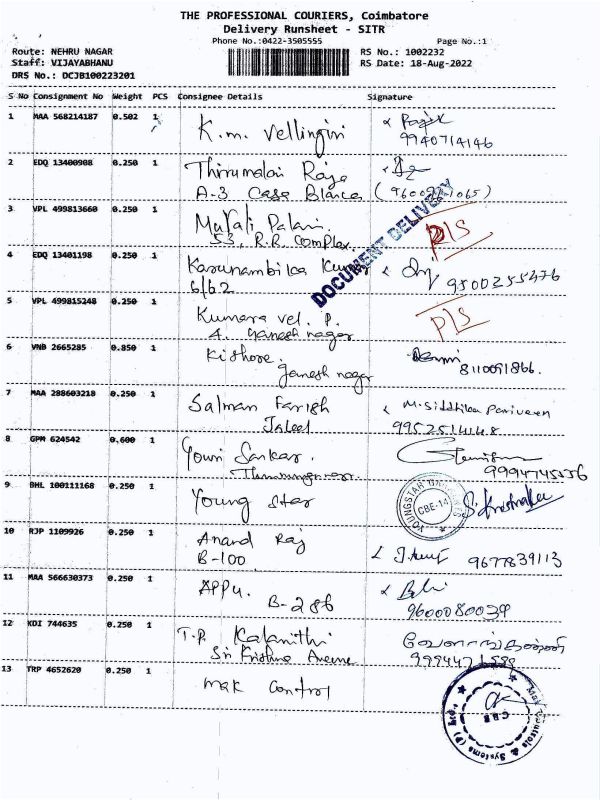 THE PROFESSIONAL COURIERS, Coimbatore
Delivery Runsheet - SITR
Phone No.:0422-3505555 Page No.:1
Route: NEHRU NAGAR RS No.: 1002232
Staff: VIJAYABHANU RS Date: 18-Aug-2022
DRS No.: DCJB100223201
S No Consignment No Weight PCS Consignee Details Signature
1 MAA 568214187 0.502 1 K.m. Vellingiri
9940714146
2 EDQ 13400908 0.250 1 Thirumalai Raja
A-3 Casa Blanca
3 VPL 499813660 0.250 1 Murali Palani. P/S
53, R.R. Complex
DOCUMENT DELIVERY
4 EDQ 13401198 0.250 1 Karunambika
6/62 9500255476
5 VPL 499815248 0.250 1 Kumara vel. P. P/S
4. Ganesh nagar
6 VNB 2665285 0.850 1 Kishore.
ganesh nagar 8110091866.
7 MAA 288603218 0.250 1 Salman Farish M. Siddhika Pariveen
Jaleel 9952514148
8 GPM 624542 0.600 1 Gowri Sankar.
9994745556
9 BHL 100111168 0.250 1 Young Star
YOUNGSTAR CBE-14
10 RJP 1109926 0.250 1 Anand Raj
B-100 9677839113
11 MAA 566630373 0.250 1 APPU.
B-286 9600080039
12 KDI 744635 0.250 1 T.P. Kalanithi
Sri Krishna Avenue
13 TRP 4652620 0.250 1 mak Control
Mak Controls & Systems (P) Ltd., CBE